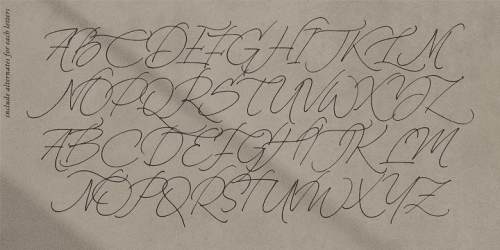 include alternates for each letters
ABCDEFGHIJKLM
NOPQRSTUVWXYZ
ABCDEFGHIJKLM
NOPQRSTUVWXYZ